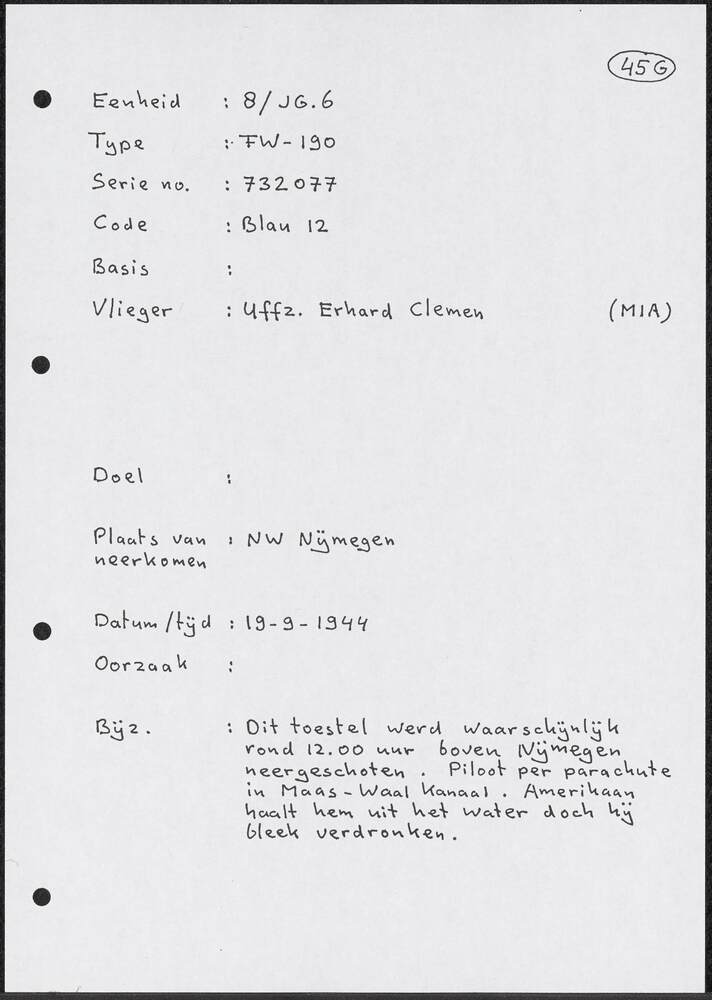 45G
Eenheid : 8/JG.6
Type : FW-190
Serie no. : 732077
Code : Blau 12
Basis :
Vlieger : Uffz. Erhard Clemen (MIA)
Doel :
Plaats van : NW Nijmegen
neerkomen
Datum/tijd : 19-9-1944
Oorzaak :
Bijz. : Dit toestel werd waarschijnlijk
rond 12.00 uur boven Nijmegen
neergeschoten. Piloot per parachute
in Maas-Waal Kanaal. Amerikaan
haalt hem uit het water doch hij
bleek verdronken.